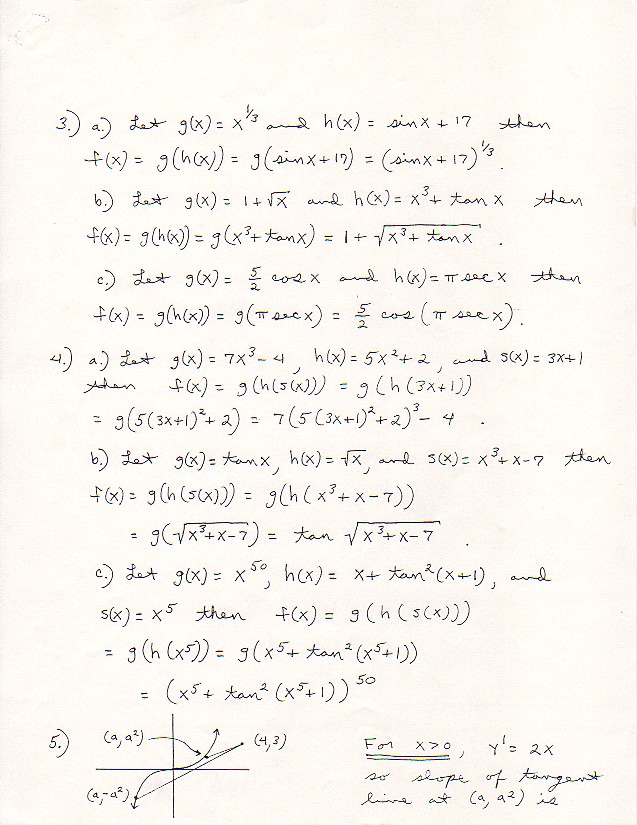 3.) a.) Let g(x) = x^{1/3} and h(x) = sin x + 17 then
f(x) = g(h(x)) = g(sin x + 17) = (sin x + 17)^{1/3}.
b.) Let g(x) = 1 + √x and h(x) = x³ + tan x then
f(x) = g(h(x)) = g(x³ + tan x) = 1 + √(x³ + tan x) .
c.) Let g(x) = 5/2 cos x and h(x) = π sec x then
f(x) = g(h(x)) = g(π sec x) = 5/2 cos (π sec x).
4.) a.) Let g(x) = 7x³ - 4, h(x) = 5x² + 2, and s(x) = 3x + 1
then f(x) = g(h(s(x))) = g(h(3x+1))
= g(5(3x+1)² + 2) = 7(5(3x+1)² + 2)³ - 4 .
b.) Let g(x) = tan x, h(x) = √x, and s(x) = x³ + x - 7 then
f(x) = g(h(s(x))) = g(h(x³ + x - 7))
= g(√(x³+x-7)) = tan √(x³+x-7) .
c.) Let g(x) = x^{50}, h(x) = x + tan²(x+1), and
s(x) = x⁵ then f(x) = g(h(s(x)))
= g(h(x⁵)) = g(x⁵ + tan²(x⁵+1))
= (x⁵ + tan²(x⁵+1))^{50}
5.) (a, a²) (4,3)
(a, -a²)
For x>0, y' = 2x
so slope of tangent
line at (a, a²) is